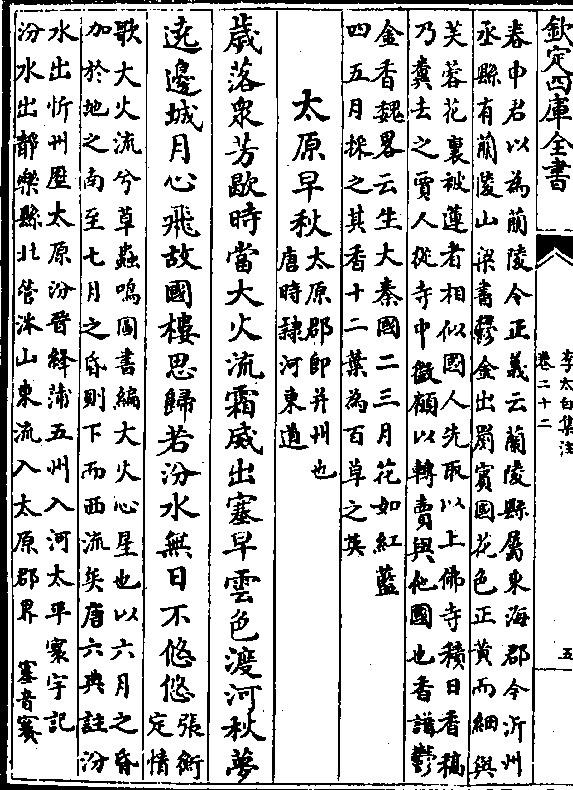 欽定四庫全書
李太白集注
卷二十二
五
春申君以為蘭陵令正義云蘭陵縣屬東海郡今沂州
丞縣有蘭陵山梁書鬱金出罽賓國花色正黃而細與
芙蓉花裏被蓮者相似國人先取以上佛寺積日香槁
乃糞去之賈人從寺中徵顧以轉賣與他國也香譜鬱
金香魏畧云生大秦國二三月花如紅藍
四五月採之其香十二葉為百草之英
太原早秋
太原郡即并州也
唐時隸河東道
歲落衆芳歇時當大火流霜威出塞早雲色渡河秋夢
遶邊城月心飛故國樓思歸若汾水無日不悠悠
張衡
定情
歌大火流兮草蟲鳴圖書編大火心星也以六月之昏
加於地之南至七月之昏則下而西流矣唐六典註汾
水出忻州歷太原汾晉絳蒲五州入河太平寰宇記
汾水出靜樂縣北管涔山東流入太原郡界 塞音賽